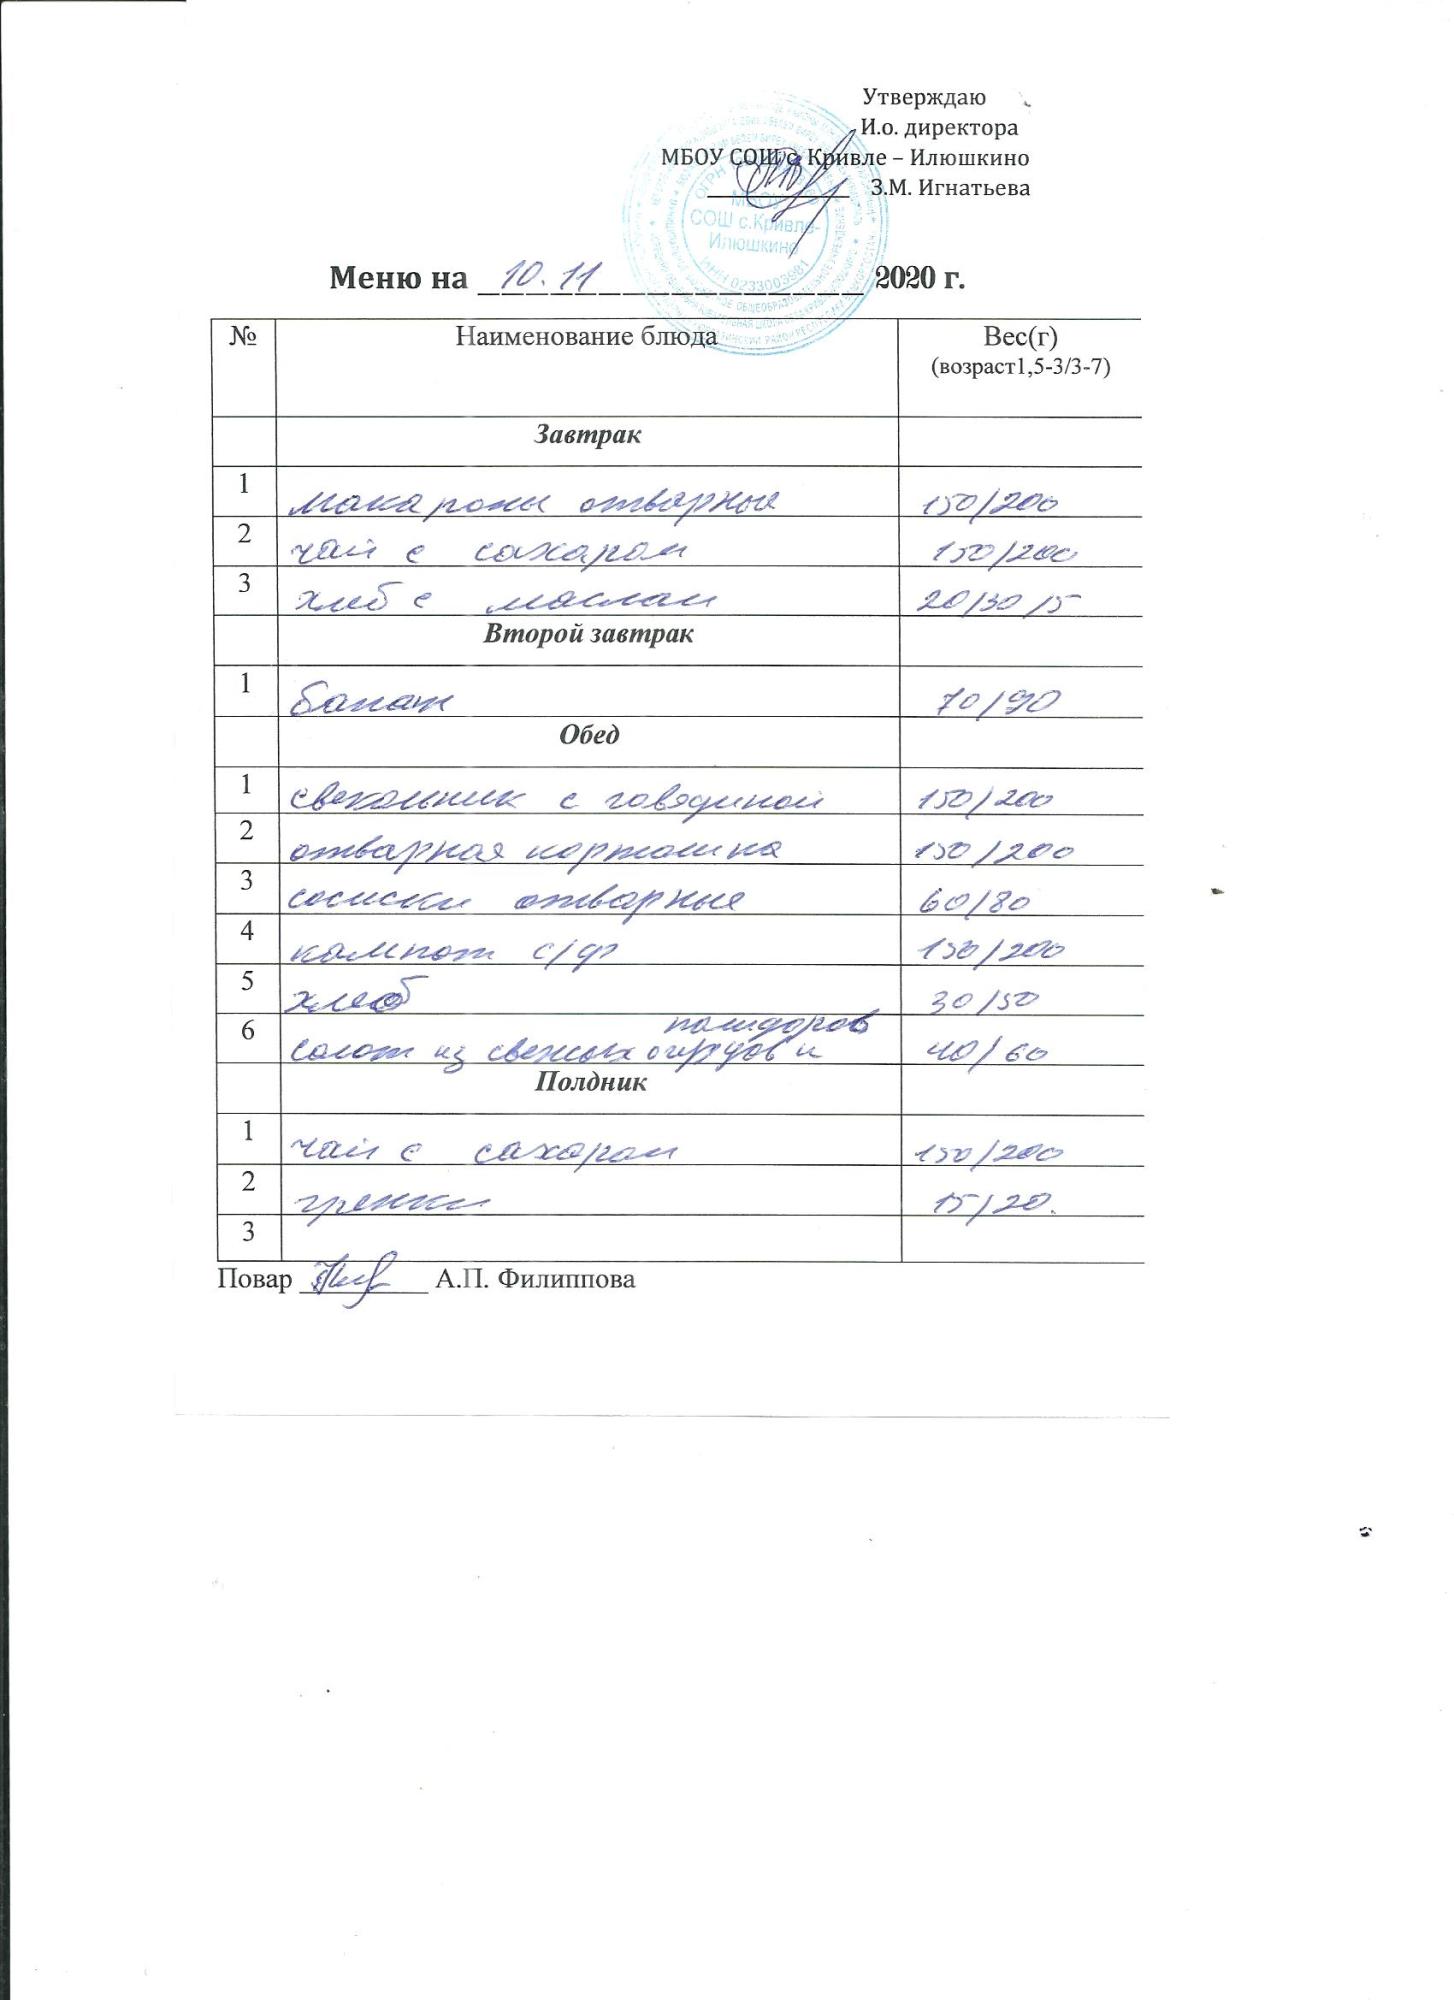 Утверждаю
И.о. директора
МБОУ СОШ с. Кривле – Илюшкино
З.М. Игнатьева
ОГРН
МБОУ
СОШ с.Кривле-
Илюшкино
ИНН 0233003581
Меню на 10.11 2020 г.
№ Наименование блюда Вес(г)
(возраст1,5-3/3-7)
Завтрак
1 макароны отварные 150/200
2 чай с сахаром 150/200
3 хлеб с маслом 20/30/5
Второй завтрак
1 банан 70/90
Обед
1 свекольник с говядиной 150/200
2 отварная картошка 150/200
3 сосиски отварные 60/80
4 компот с/ф 150/200
5 хлеб 30/50
помидоров
6 салат из свежих огурцов и 40/60
Полдник
1 чай с сахаром 150/200
2 гренки 15/20.
3
Повар А.П. Филиппова